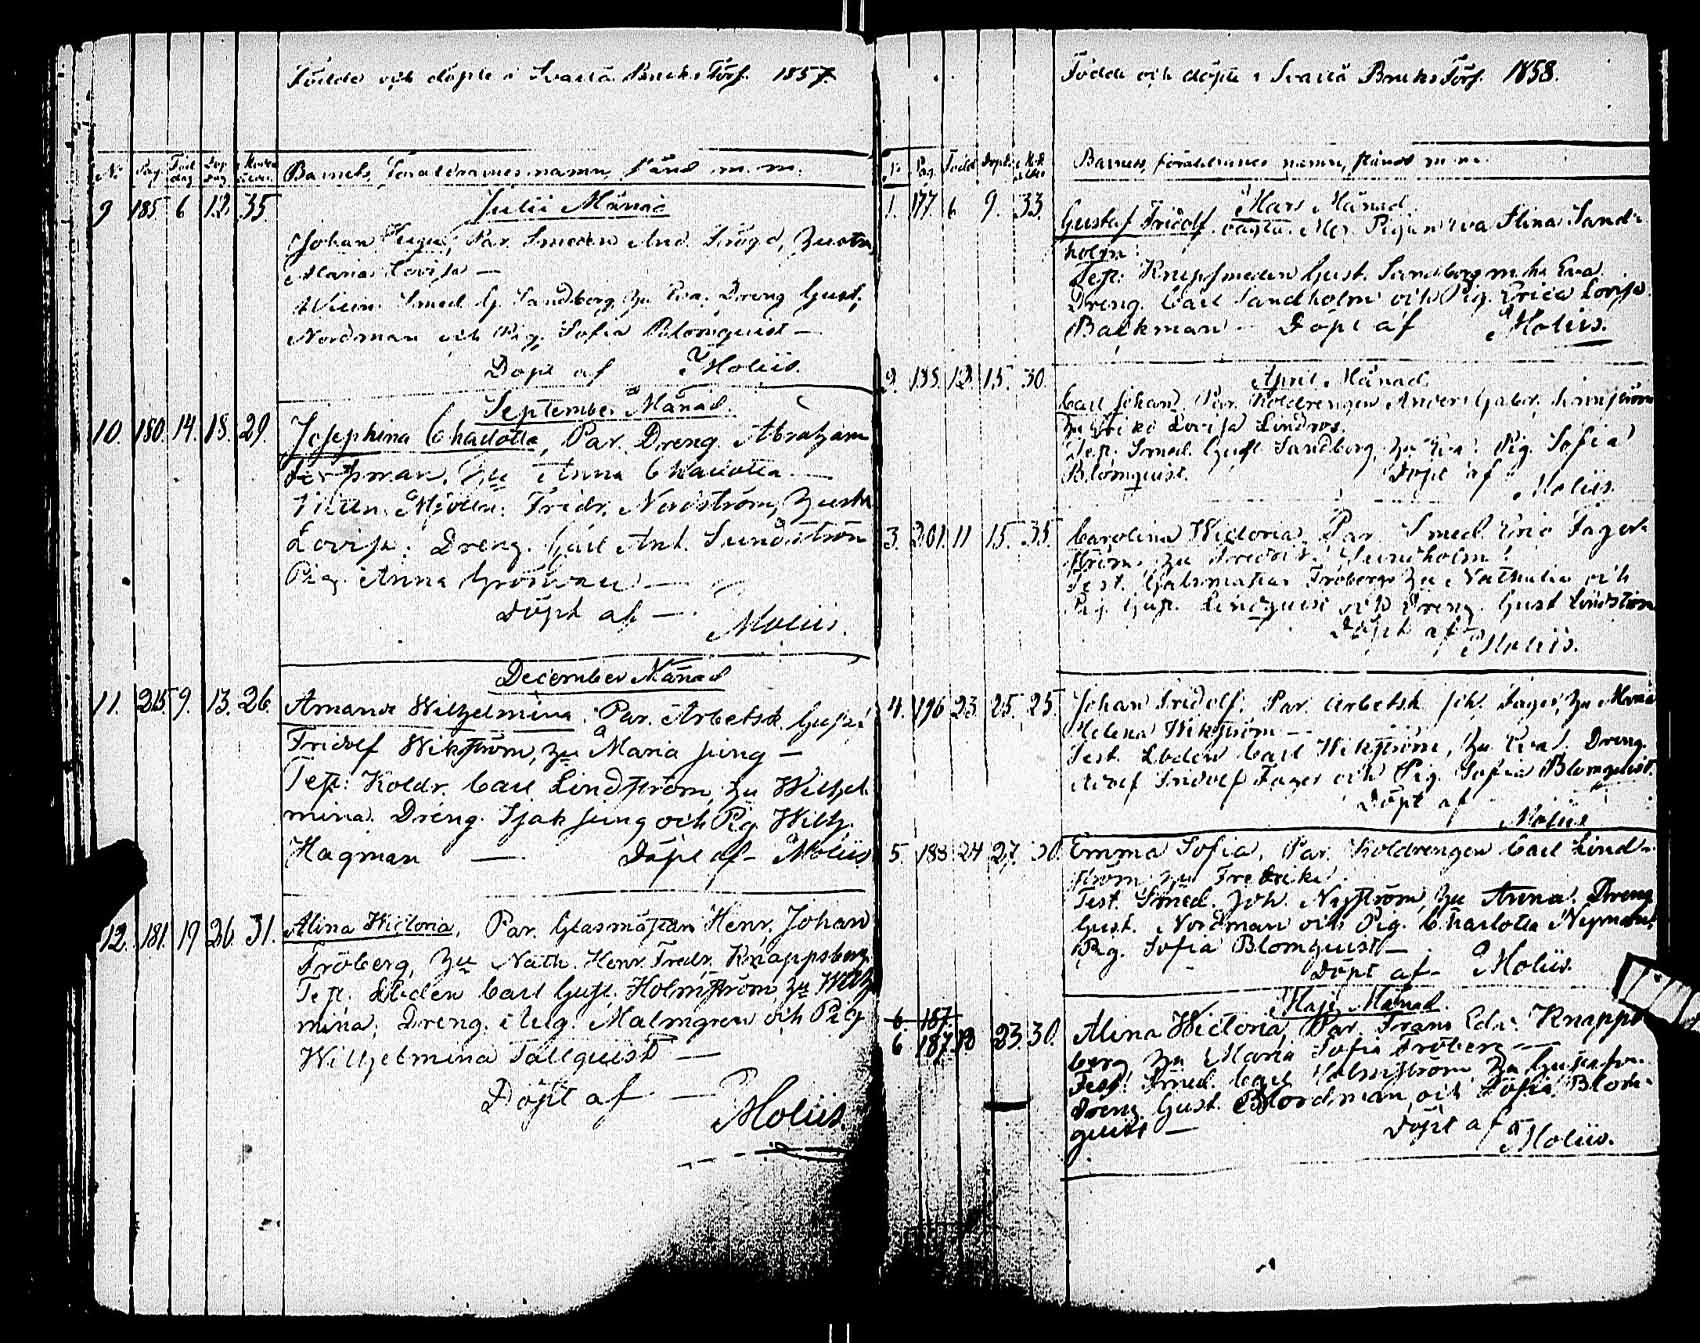 Födde och döpte i Svartå Bruks Förs. 1857.
No Pag. Född dag Döp dag Moders ålder Barnets, Föräldrarnes namn, stånd m.m.
Julii Månad
9 185 6 12. 35
Johan Hugo, Par. Smeden And.
Maria Lovisa —
Smed G. Sandberg, hu Eva. Dreng Gust.
Nordman och Pig. Sofia Blomquist —
Döpt af Moliis.
September Månad.
10. 180. 14. 18. 29. Josephina Charlotta, Par. Dreng. Abraham
hu Anna Charlotta —
Fridr. Nordström, hustr
Lovisa. Dreng. Carl Ant. Sundström
Pig. Anna Grönvall —
Döpt af — Moliis.
December Månad
11. 215 9. 13. 26. Amanda Wilhelmina, Par. Arbetsk. Gustaf
Fridolf Wikström, hu Maria Jung —
Test. Koldr. Carl Lindström, hu Wilhel
mina. Dreng. Isak Jung och Pig. Wilh.
Hagman — Döpt af — Moliis
12. 181. 19 26. 31. Alina Victoria, Par. Glasmästar Henr. Johan
Fröberg, hu Nath. Henr. Fredr. Knappsberg.
Test. Carl Gust. Holmström hu Wilh
mina. Dreng. Aug. Malmgren och Pig
Wilhelmina Tallquist —
Döpt af — Molius.
Födde och döpte i Svartå Bruks Förs. 1858.
No Pag. Född Döpte Barnets, föräldrarnes namn, stånd m.m.
Mars Månad.
1. 177 6 9. 33. Gustaf Fridolf, oägta. Mor. Pigan Eva Stina Sand-
holm.
Test. Knipsmeden Gust. Sandberg m. h. Eva.
Dreng. Carl Sandholm och Pig. Erica Lovisa
Backman — Döpt af Moliis.
April Månad.
12. 15. 30. Carl Johan, Par. Koldrengen Anders Gabr.
hu Lovisa Lindros.
Test. Smed. Gust. Sandberg hu Eva. Pig. Sofia
Blomquist. Döpt af Moliis.
3. 201. 11 15. 35. Carolina Victoria, Par. Smed. Eric Fager-
ström, hu Sundholm.
Test. Glasmästar Fröberg hu Nathalia och
Pig. Gust. Lindquist och Dreng. Gust Lindström
Döpt af Moliis.
4. 196 23. 25. 25. Johan Fridolf, Par. Arbetsk. Joh. Fager, hu Maria
Helena Wikström —
Test. Carl Wikström, hu Eva. Dreng.
Adolf Fridolf Fager och Pig. Sofia Blomquist.
Döpt af Moliis
5. 188 24 27. 30. Emma Sofia, Par. Koldrengen Carl Lind-
ström hu Fredrika.
Test. Smed. Joh. Nyström, hu Anna. Dreng
Gust. Nordman och Pig. Charlotta Nyman
Pig. Sofia Blomquist —
Döpt af — Moliis.
Maji Månad.
6. 187.
6 187. 18 23. 30. Alina Victoria, Par. Frans Edv. Knapps-
berg hu Maria Sofia Fröberg —
Test. Smed. Carl Holmström hu Gustafva.
Dreng Gust. Nordman, och Sofia Blom-
quist — Döpt af Moliis.